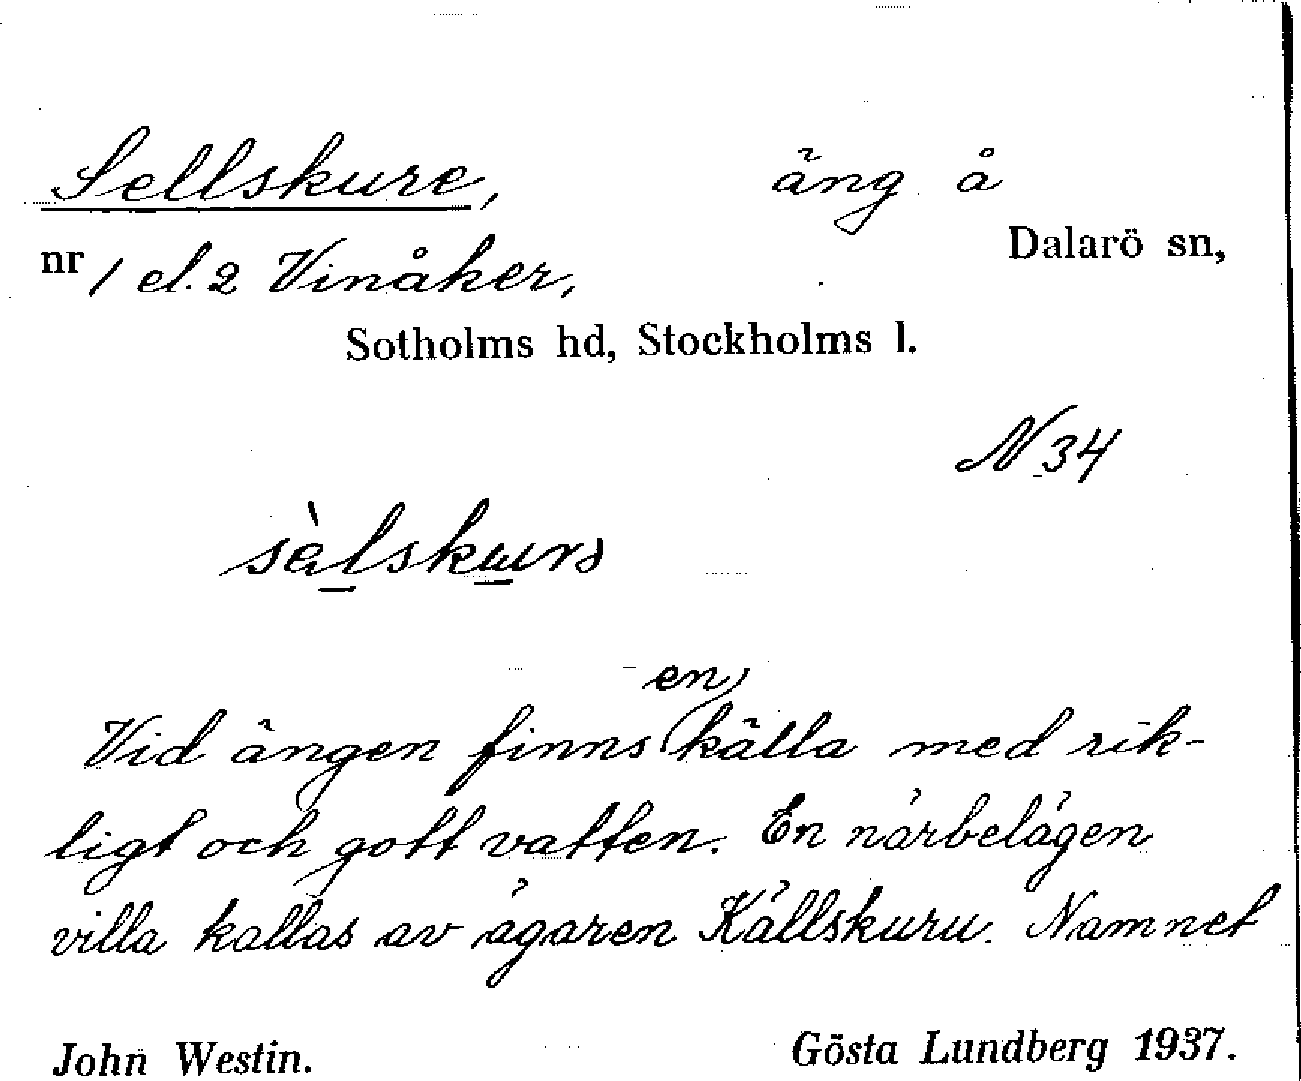 Sellskure, äng å
Dalarö sn,
nr 1 el. 2 Vinåker,
Sotholms hd, Stockholms l.
N 34
sàlskurə
en
Vid ängen finns källa med rik-
ligt och gott vatten. En närbelägen
villa kallas av ägaren Källskuru. Namnet
John Westin. Gösta Lundberg 1937.